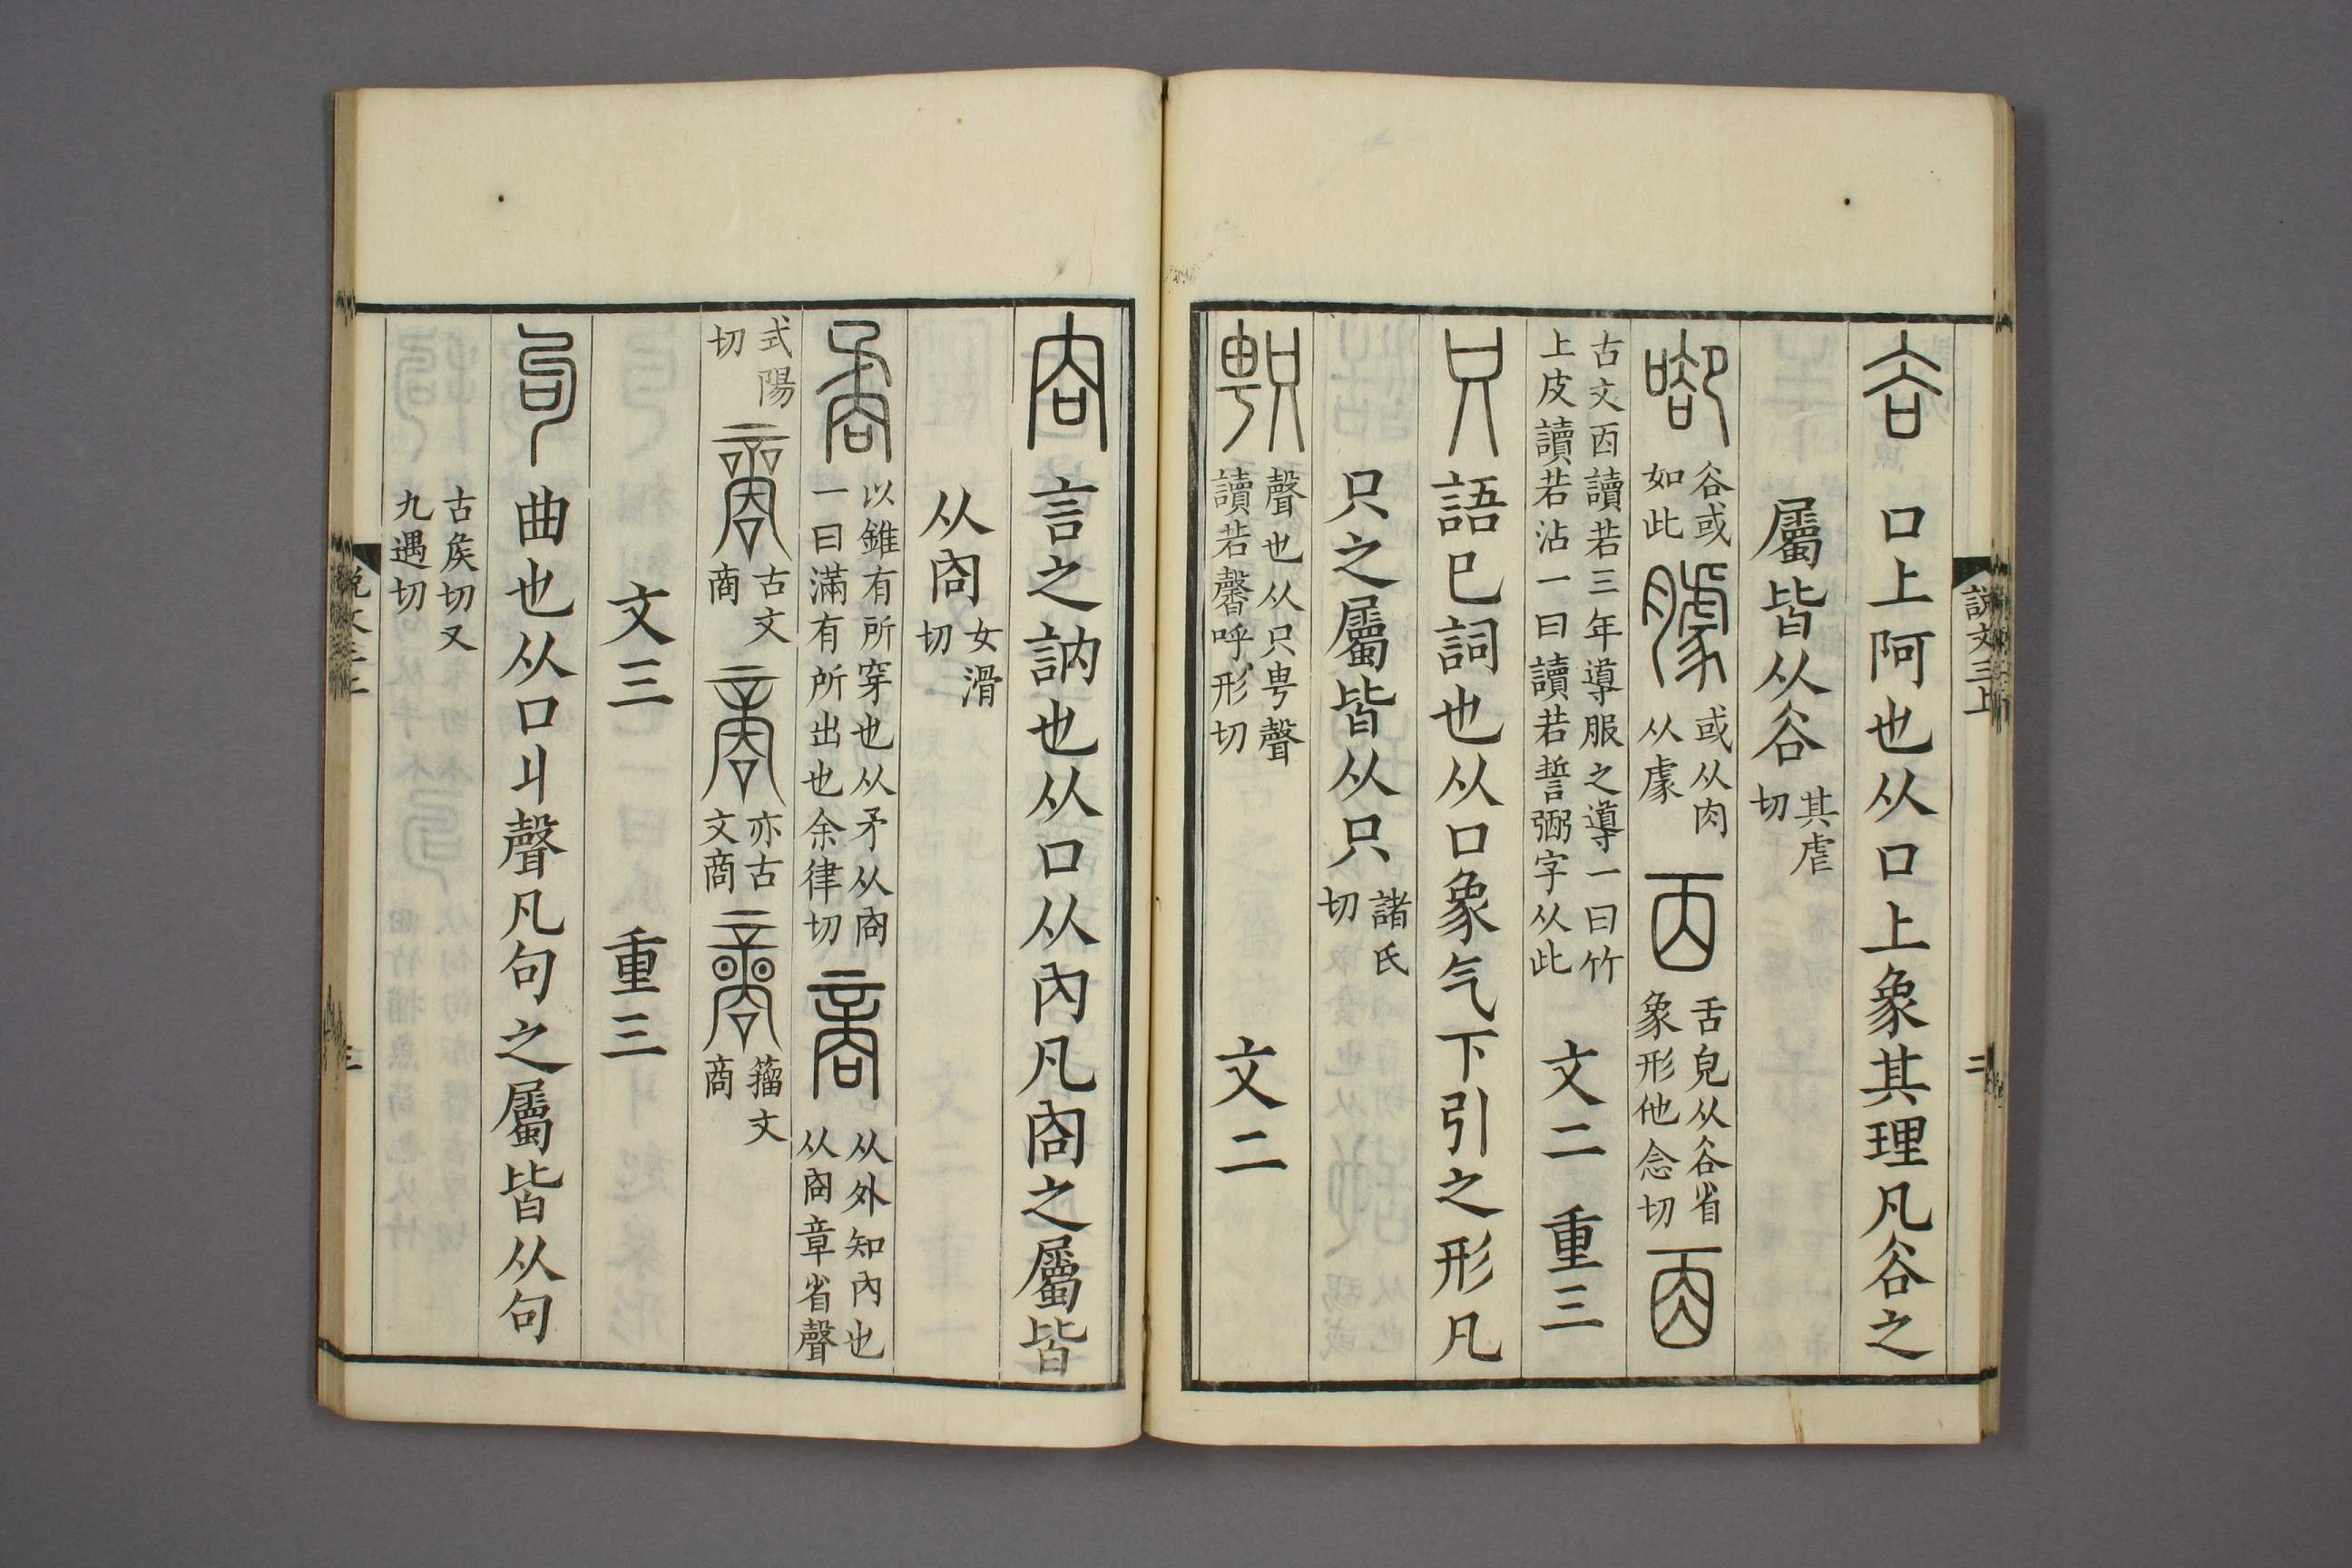 說文三上
二
𧮫 口上阿也从口上象其理凡𧮫之
屬皆从𧮫 其虐切
㕁 𧮫或如此 臄 或从肉从豦 㐁 舌皃从𧮫省象形他念切 𠀬
古文㐁讀若三年導服之導一曰竹上皮讀若沾一曰讀若誓弼字从此 文二 重三
只 語巳詞也从口象气下引之形凡
只之屬皆从只 諸氏切
𠷎 聲也从只甹聲讀若馨呼形切 文二
㕯 言之訥也从口从內凡㕯之屬皆
从㕯 女滑切
矞 以錐有所穿也从矛从㕯一曰滿有所出也余律切 商 从外知內也从㕯章省聲
式陽切 𠾃 古文商 𠹧 亦古文商 𠿧 籀文商
文三 重三
句 曲也从口丩聲凡句之屬皆从句
古矦切又九遇切
說文三上
三